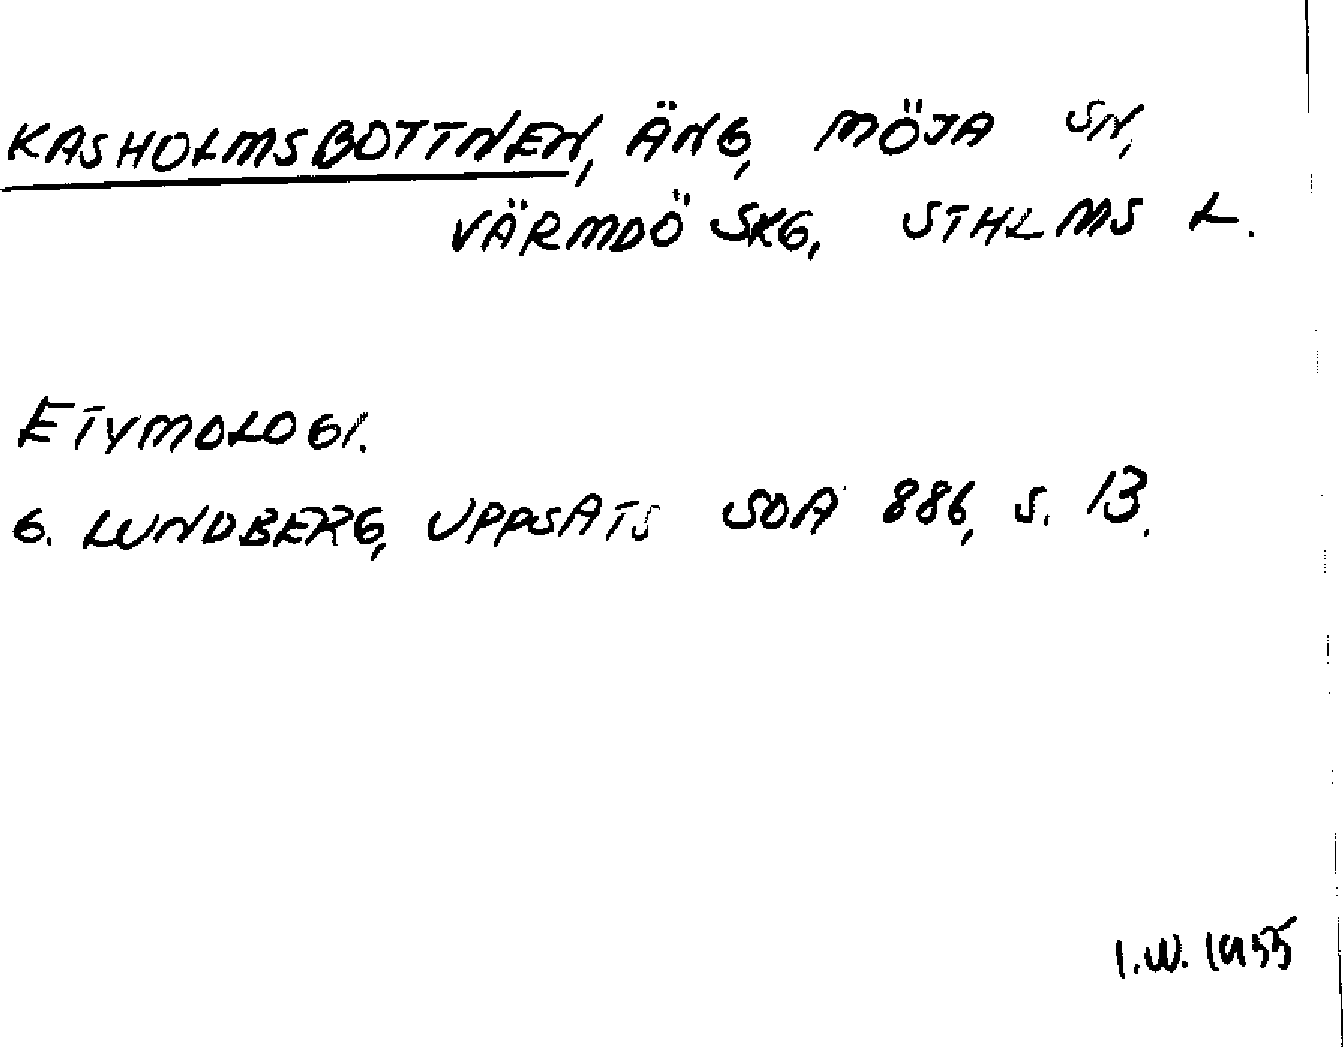 KASHOLMSBOTTNEN, ÄNG, MÖJA SN,
VÄRMDÖ SKG, STHLMS L.
ETYMOLOGI.
G. LUNDBERG, UPPSATS SOA 886, S. 13.
I.W. 1955